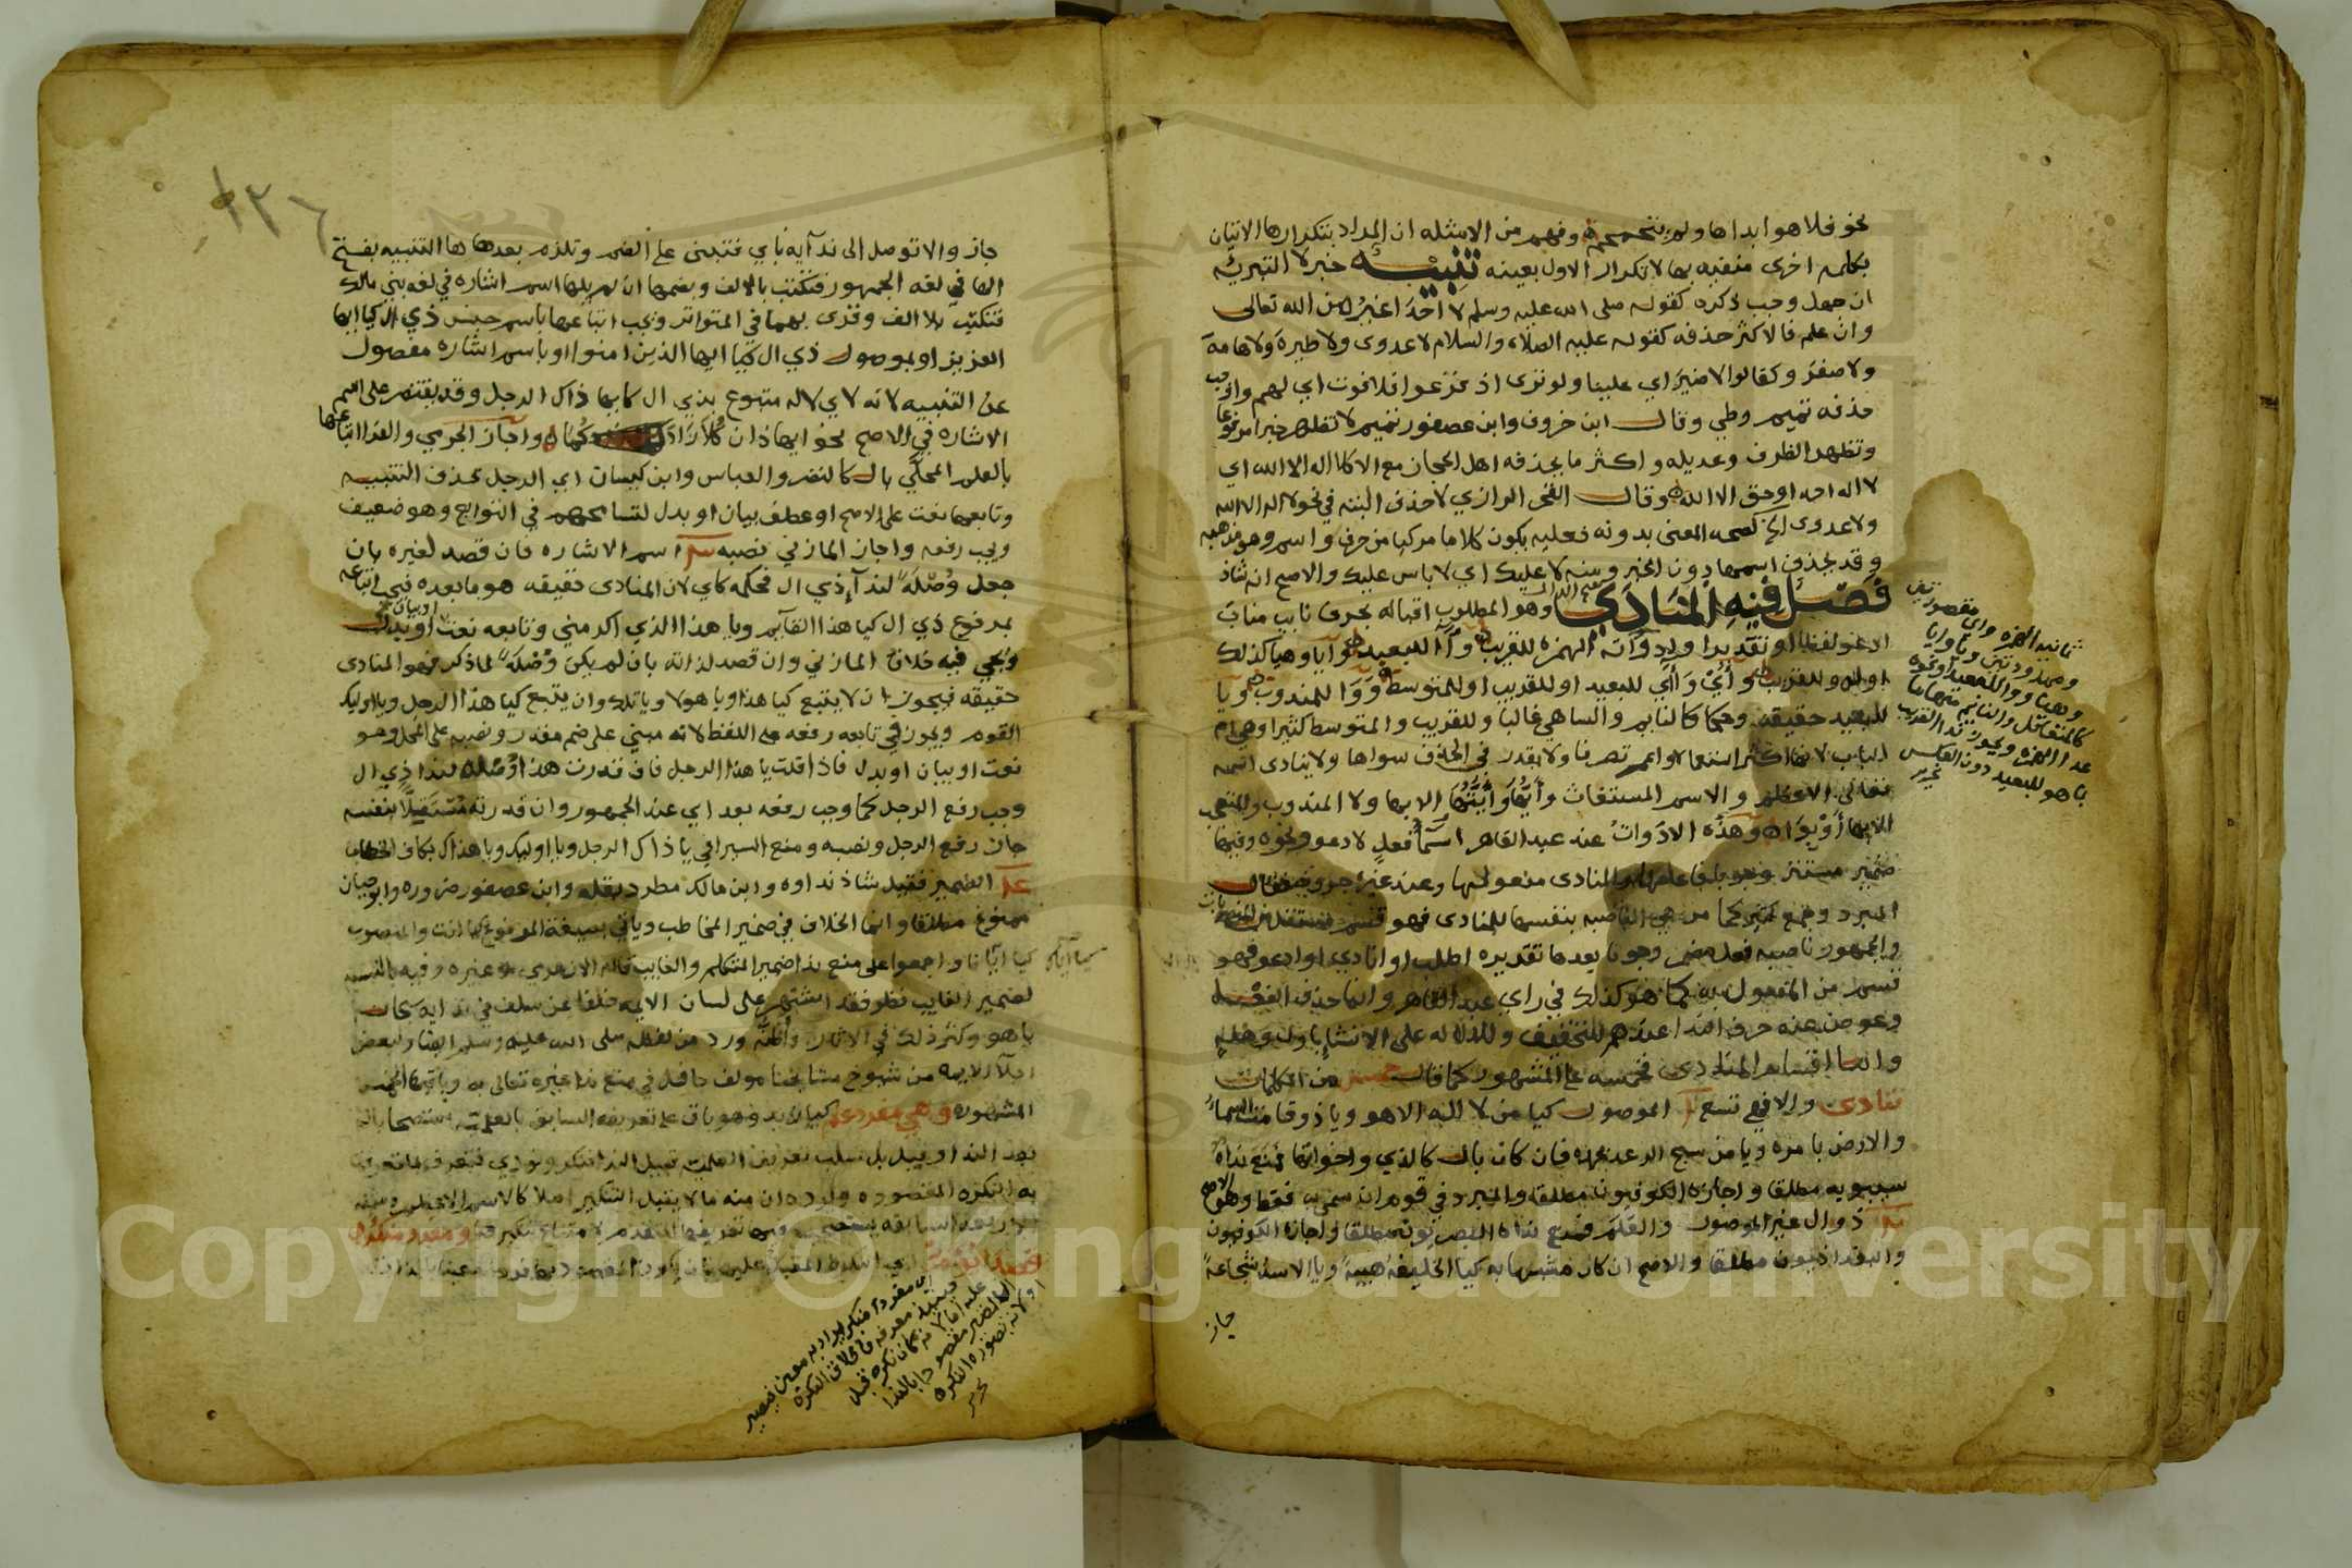 نحو فلا هو ابداها ولم يتجمجم وفهم من الامثله ان المراد بتكرارها الاتيان
بكلمه اخرى منفيه بها لا تكرار الاول بعينه تنبيه خبر لا التبرئه
ان جهل وجب ذكره كقوله صلى الله عليه وسلم لا احد اغير من الله تعالى
وان علم فالاكثر حذفه كقوله عليه الصلاه والسلام لا عدوى ولا طيرة ولا هامة
ولا صفر وكقالوا لا ضير اي علينا ولو ترى اذ فزعوا فلا فوت اي لهم واوجب
حذفه تميم وطي وقال ابن خروف وابن عصفور تميم لا تظهر خبرا مرفوعا
وتظهر الظرف وعديله واكثر ما يحذفه اهل الحجاز مع الا كلا اله الا الله اي
لا اله احد او حق الا الله وقال الفخر الرازي لا حذف البته في نحو لا اله الا الله
ولا عدوى الخ لصحه المعنى بدونه فعليه يكون كلاما مركبا من حرف واسم وهو مذهبه
وقد يحذف اسمها دون الخبر ومنه لا عليك اي لا باس عليك والاصح انه شاذ
فصل فيه المنادى وهو المطلوب اقباله بحرف نايب مناب
ادعو لفظا او تقديرا وادواته الهمزه للقريب و آ للبعيد و آيا وهيا كذلك
او للقريب و أي و آي للبعيد او للقريب او للمتوسط و وا للمندوب و يا
للبعيد حقيقه وحكما كالنايم والساهي غالبا وللقريب والمتوسط كثيرا وهي ام
الباب لانها اكثر استعمالا واعم تصرفا ولا يقدر في الحذف سواها ولا ينادى اسمه
تعالى الاعظم والاسم المستغاث وأيها وأيتها الا بها ولا المندوب والمتعجب
الا بها أو بوا وهذه الادوات عند عبد القاهر اسما فعل لادعو ونحوه وفيها
ضمير مستتر هو فاعلها والمنادى مفعولها وعند غيره حروف فقال
المبرد وجمع كثير هي الناصبه بنفسها للمنادى فهو قسم مستقل من المنصوبات
والجمهور ناصبه فعل مضمر وجوبا بعدها تقديره اطلب او انادي او ادعو فهو
قسم من المفعول به كما هو كذلك في راي عبد القاهر وانما حذف الفعل
وعوض عنه حرف الندا عندهم للتخفيف وللدلاله على الانشا
واما اقسام المنادى فخمسه على المشهور كما قال خمس من الكلمات
تنادى والا فهي تسع الموصول كيا من لا اله الا هو ويا ذوقا متت السماء
والارض بامره ويا من سبح الرعد بحمده فان كان بال كالذي واخواتها فمنع نداه
سيبويه مطلقا واجازه الكوفيون مطلقا والمبرد في قوم ان سمي به فقط وهو الاصح
ذو ال غير الموصول والعلم فمنع نداه البصريون مطلقا واجازه الكوفيون
والبغداديون مطلقا والاصح ان كان مشبها به كيا الخليفة هيبة ويا الاسد شجاعة
جاز
ثمانيه الهمزه واي مقصورتين
وممدودتين ويا وايا
وهيا ووا للبعيد او نحوه
كالمتغافل والنايم منهاما
عدا الهمزه ويجوز ندا القريب
بما هو للبعيد دون العكس
تحرير
١٣٦
جاز والا توصل الى نداه باي فتبنى على الضم وتلزم بعدها ها التنبيه بفتح
الها في لغه الجمهور فتكتب بالالف وبضمها ان لم يلها اسم اشاره في لغه بني مالك
فتكتب بلا الف وقرى بهما في المتواتر ويجب اتباعها باسم جنس ذي ال كيا ايها
العزيز او بموصول ذي ال كيا ايها الذين امنوا او باسم اشاره مفصول
عن التنبيه لانه لاي لا له متبوع بذي ال كايها ذاك الرجل وقد يقتصر على اسم
الاشاره في الاصح نحو ايها ذان كلا زادكما واجاز الجرمي والفرا اتباعها
بالعلم المحلى بال كالنضر والعباس وابن كيسان اي الرجل بحذف التنبيه
وتابعها نعت على الاصح او عطف بيان او بدل لتسامحهم في التوابع وهو ضعيف
ويجب رفعه واجاز المازني نصبه اسم الاشاره فان قصد لغيره بان
جعل وصلة لندا ذي ال فحكمه كاي لان المنادى حقيقه هو ما بعده فيجب اتباعه
بمرفوع ذي ال كيا هذا القايم ويا هذا الذي اكرمني وتابعه نعت او بيان او بدل
ويجي فيه خلاف المازني وان قصد لذاته بان لم يكن وصلة لما ذكر فهو المنادى
حقيقه فيجوز ان لا يتبع كيا هذا ويا هولا ويا تلك وان يتبع كيا هذا الرجل ويا اوليك
القوم ويجوز في تابعه رفعه على اللفظ لانه مبني على ضم مقدر ونصبه على المحل وهو
نعت او بيان او بدل فاذا قلت يا هذا الرجل فان قدرت هذا وصلة لندا ذي ال
وجب رفع الرجل كما وجب رفعه بعد اي عند الجمهور وان قدرته مستقلا بنفسه
جاز رفع الرجل ونصبه ومنع السيرافي يا ذاك الرجل ويا اوليك ويا هذاك بكاف الخطاب
الضمير فقيل شاذ نداوه وابن مالك مطرد بقله وابن عصفور ضروره وابو حيان
ممنوع مطلقا وانما الخلاف في ضمير المخاطب وياتي بصيغة المرفوع كيا انت والمنصوب
كيا اياك واجمعوا على منع ندا ضمير المتكلم والغايب قاله الازهري وغيره وفيه بالنسبه
لضمير الغايب نظر فقد اشتهر على لسان الايمه خلفا عن سلف في ندايه سبحانه
يا هو وكثر ذلك في الاثار واظنه ورد من لفظه صلى الله عليه وسلم ايضا ولبعض
اجلا الايمه من شيوخ مشايخنا مولف حافل في منع ندا غيره تعالى به وباقيها الخمس
المشهوره وهي مفرد علم كيا زيد وهو باق على تعريفه السابق بالعلميه
بعد الندا وقيل بل سلب تعريف العلميه قبيل الندا فنكر ونودي فتعرف بما تعرف
به النكره المقصوده ورد بان منه ما لا يقبل التنكير اصلا كالاسم الاعظم
اي مفردا منكرا يراد به معين فيصير
حينئذ معرفه بخلاف النكره
الغير مقصوده بالندا